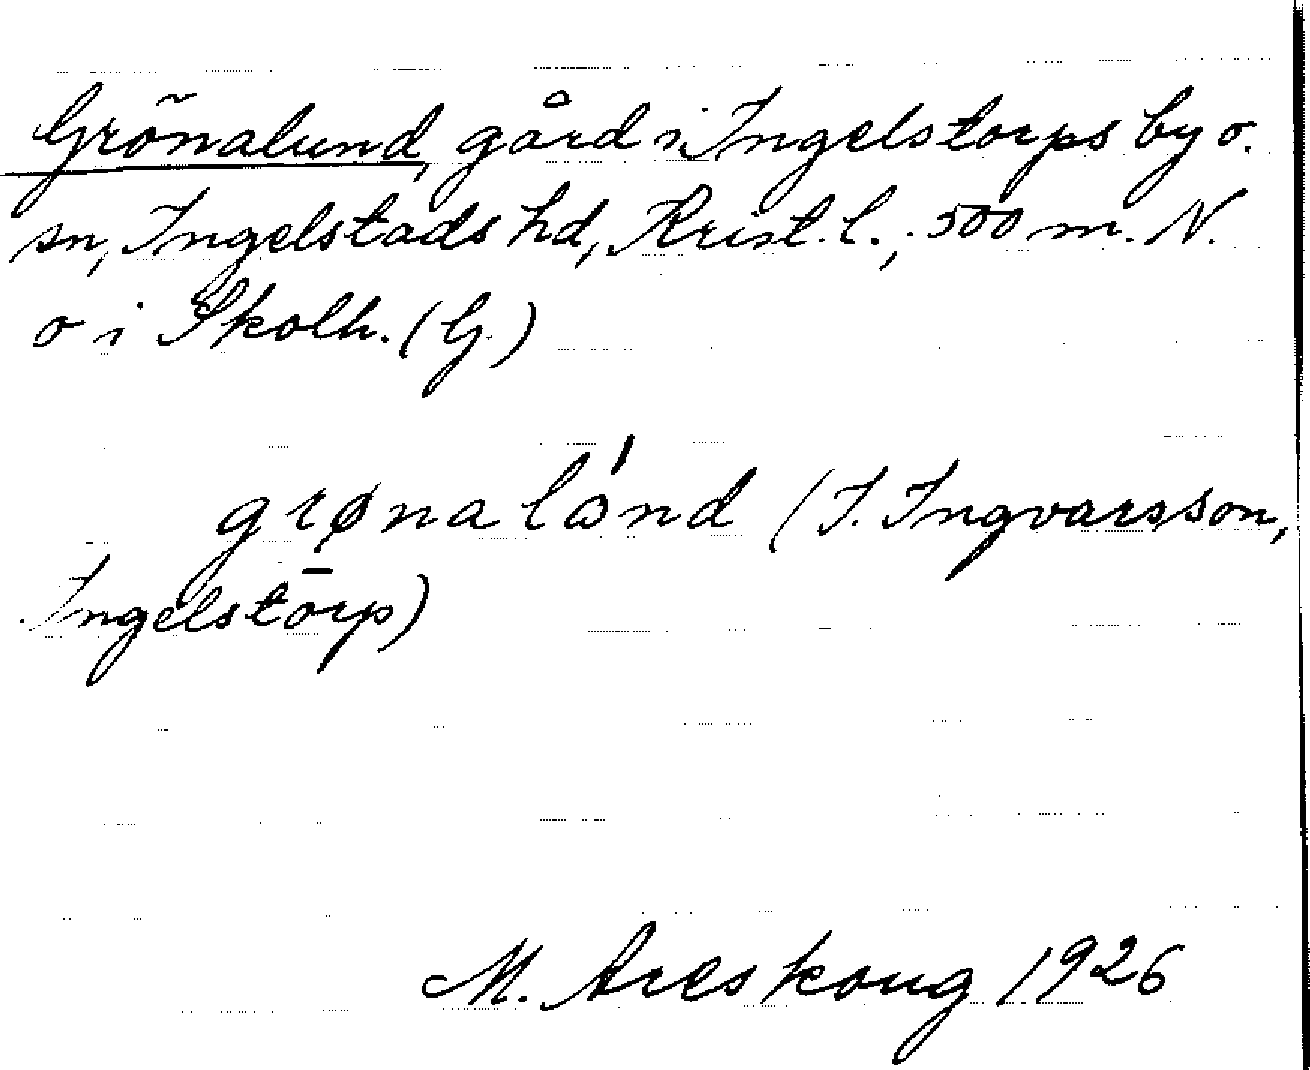 Grönalund, gård i Ingelstorps by o.
sn, Ingelstads hd, Krist. l., 500 m. N.
o i Skolh. (G.)
grønaló̵nd (I. Ingvarsson,
Ingelstōrp)
M. Areskoug 1926